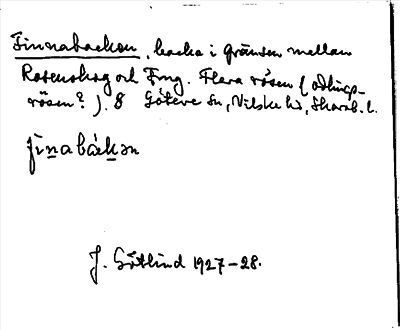 Finnabacken, backe i gränsen mellan
Rosenskog och Äng. Flera rösen (odlings-
rösen?). 8 Göteve sn, Vilske hd, Skarab. l.
finabákən
J. Götlind 1927-28.